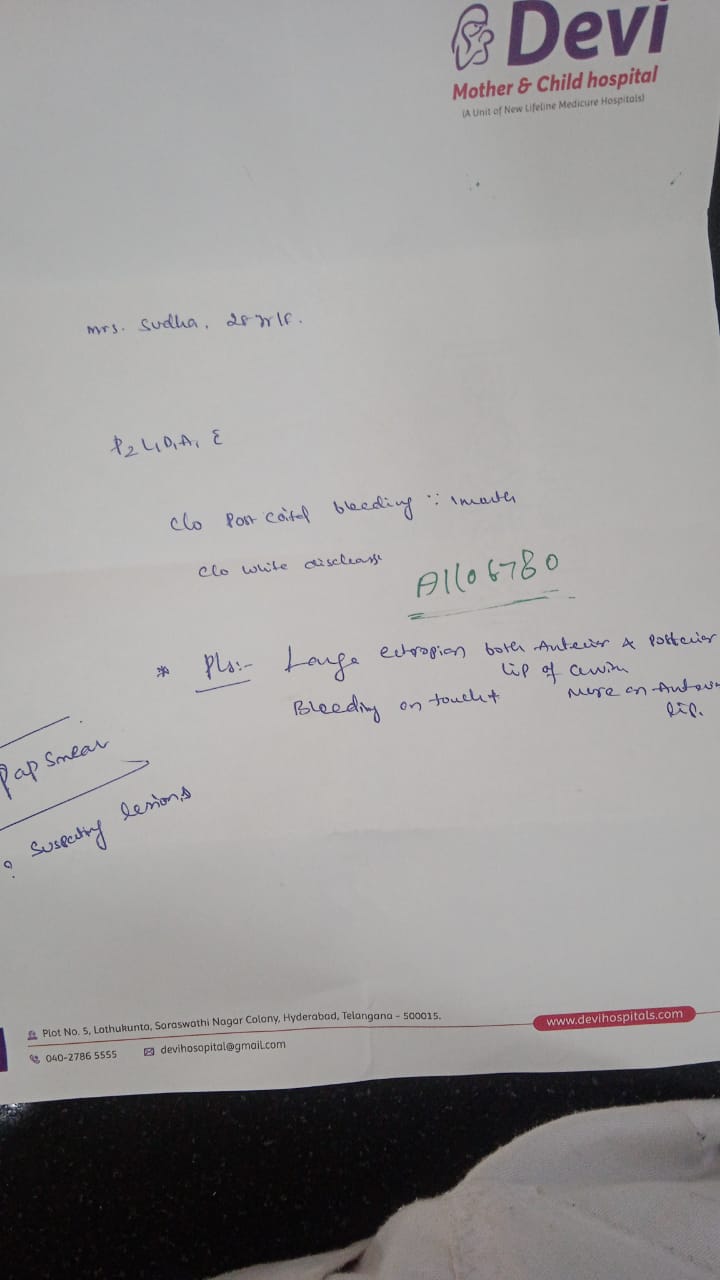 Devi
Mother & Child hospital
(A Unit of New Lifeline Medicure Hospitals)
mrs. Sudha.
P2 L1 D1 A1
c/o Post coital bleeding
c/o white discharge
A1106780
* Pls:- Large ectropion both Anterior & Posterior
lip of
Bleeding on touch+ more on Anterior
lip.
Pap smear
? lesions
Plot No. 5, Lothukunta, Saraswathi Nagar Colony, Hyderabad, Telangana - 500015.
www.devihospitals.com
040-2786 5555 devihosopital@gmail.com